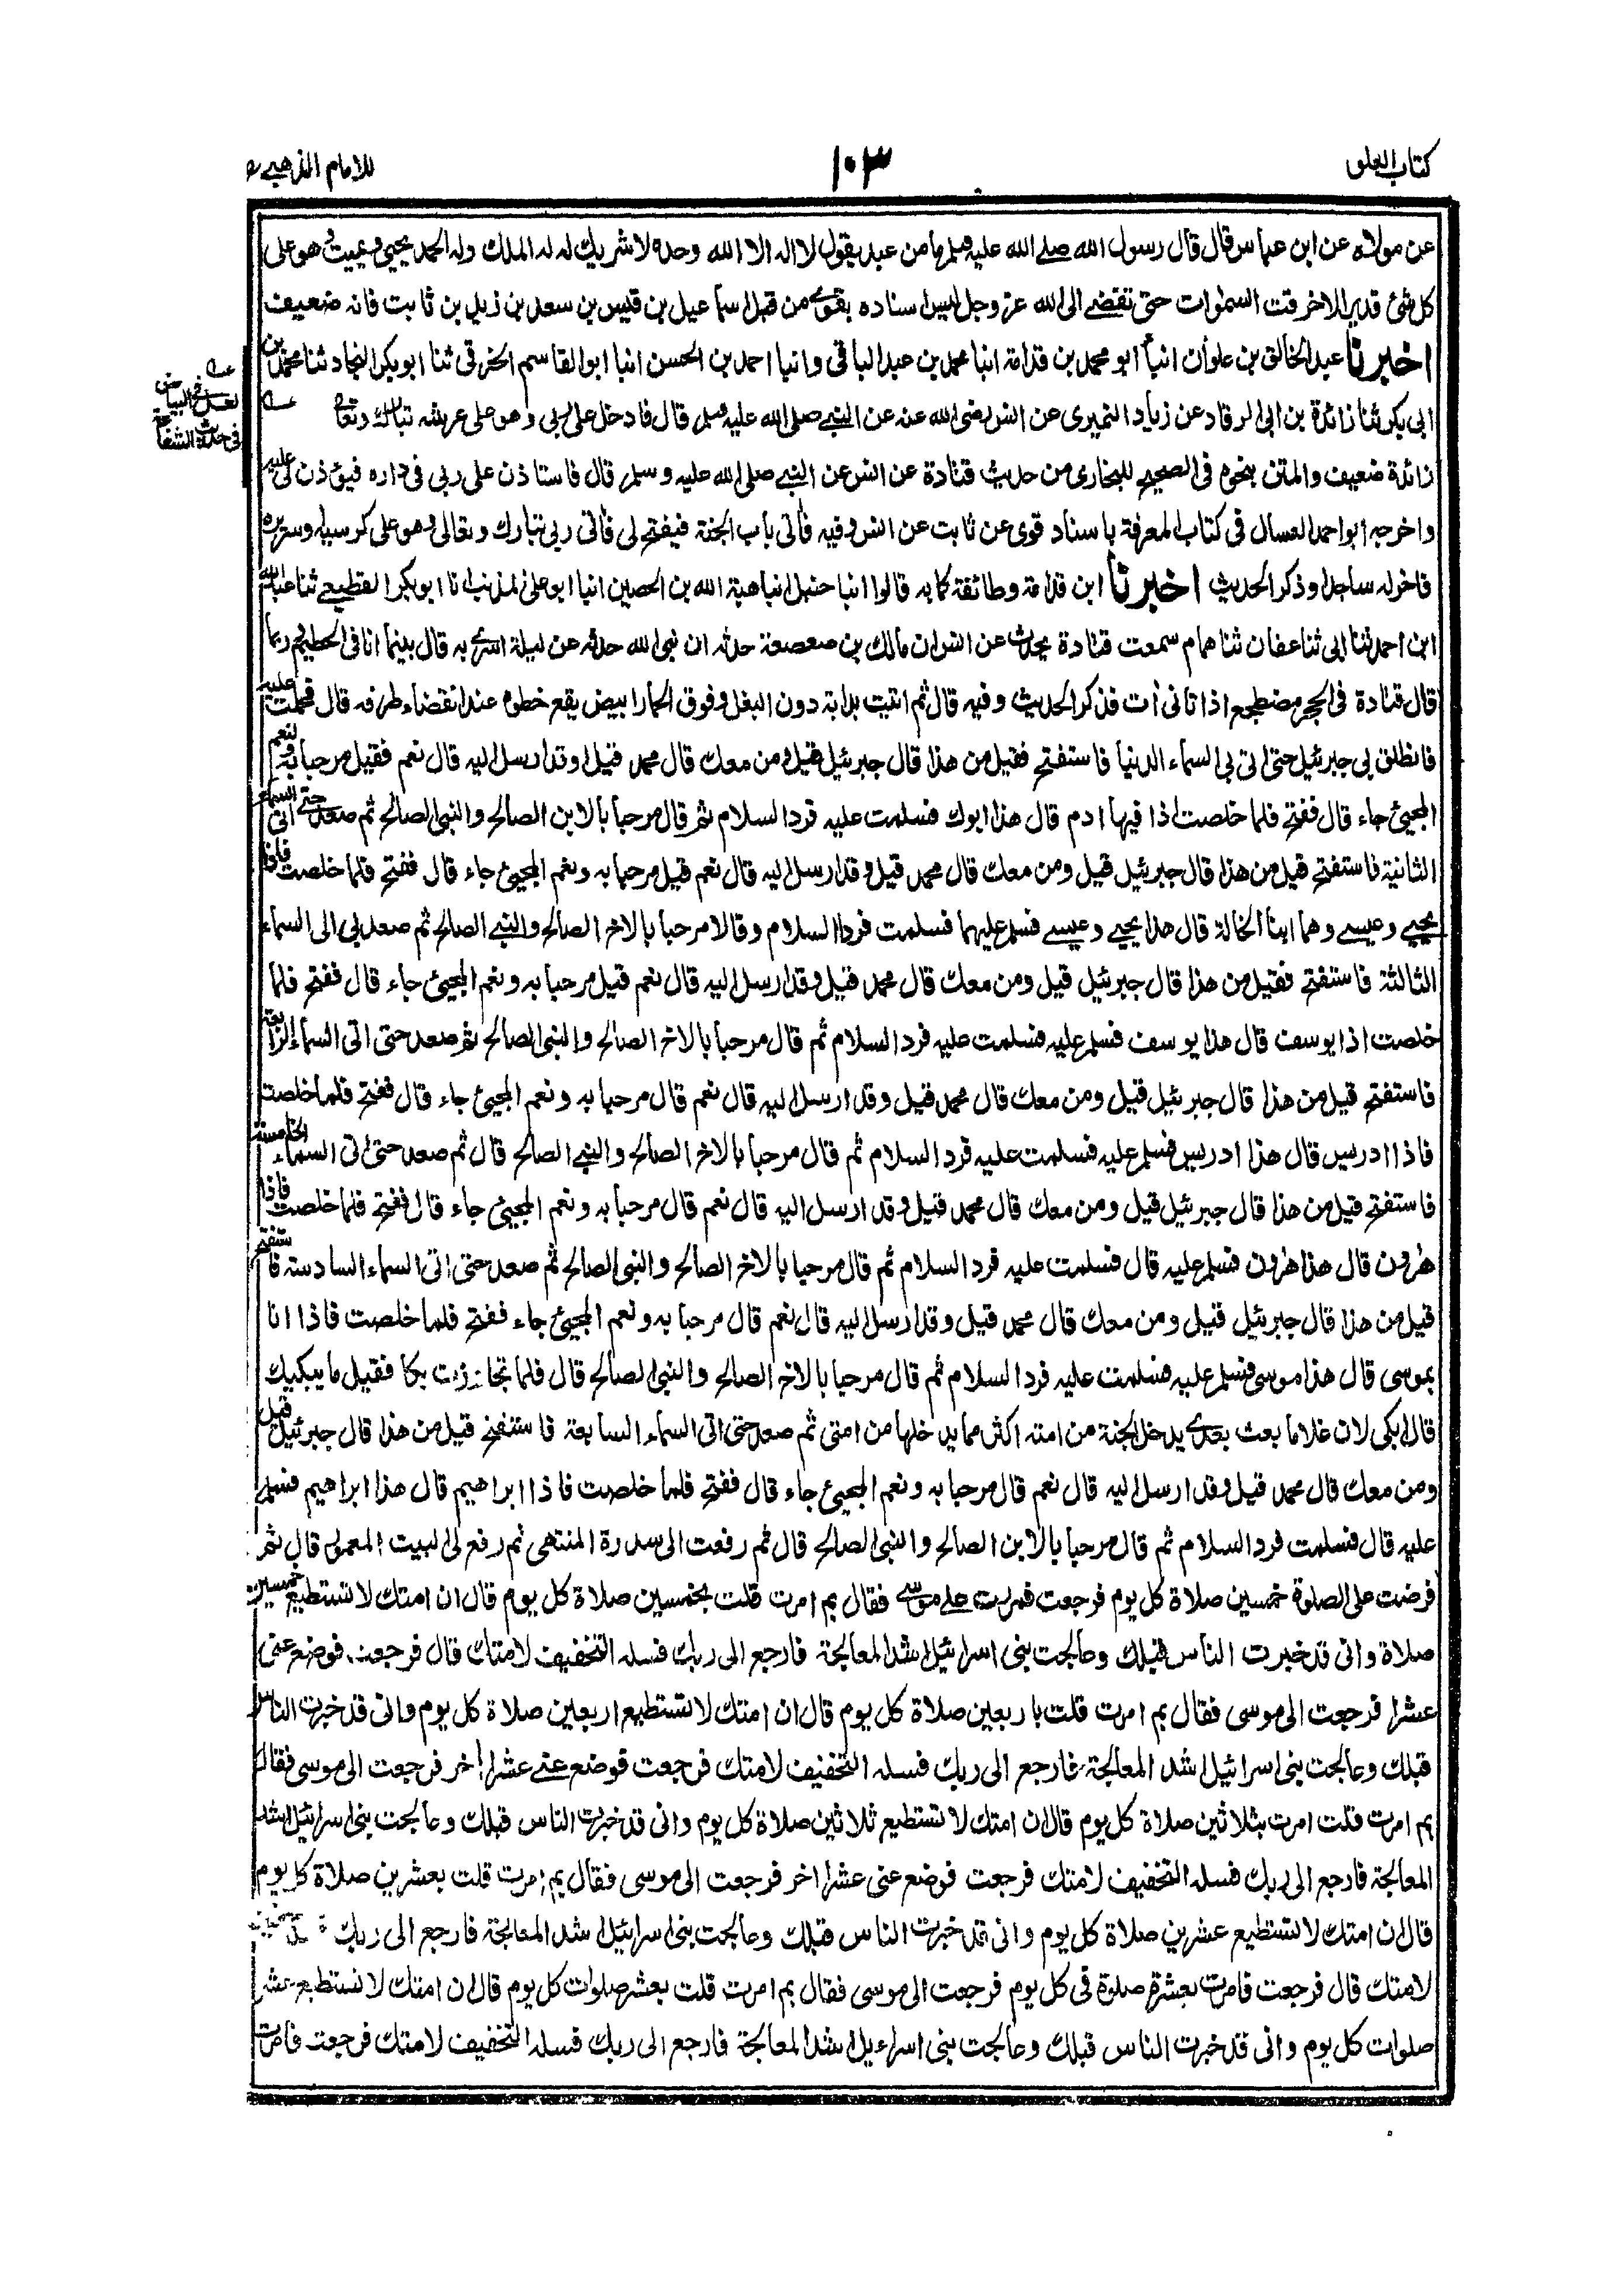 كتاب العلو
١٠٣
للامام الذهبي
عن مولاه عن ابن عباس قال قال رسول الله صلى الله عليه وسلم ما من عبد يقول لا اله الا الله وحده لا شريك له له الملك وله الحمد يحيي ويميت وهو على
كل شئ قدير الا خرقت السموات حتى تفضى الى الله عز وجل ليس اسناده بقوى من قبل اسماعيل بن قيس بن سعد بن زيد بن ثابت فانه ضعيف
اخبرنا عبد الخالق بن علوان انبأ ابو محمد بن قدامة انبا محمد بن عبد الباقي وانبا احمد بن الحسن انبا ابو القاسم الخرقي ثنا ابو بكر النجاد ثنا محمد بن
ابي بكر ثنا زائدة بن ابي الرقاد عن زياد النميرى عن انس رضى الله عنه عن النبي صلى الله عليه وسلم قال فادخل على ربي وهو على عرشه تبارك وتعالى عـه
زائدة ضعيف والمتن بنحوه فى الصحيح للبخارى من حديث قتادة عن انس عن النبي صلى الله عليه وسلم قال فاستاذن على ربي فى داره فيؤذن لى عليه
واخرجه ابو احمد العسال فى كتاب المعرفة باسناد قوى عن ثابت عن انس وفيه فأتى باب الجنة فيفتح لى فأتى ربي تبارك وتعالى وهو على كرسيه وسريره
فاخر له ساجدا وذكر الحديث اخبرنا ابن قدامة وطائفة كتابه قالوا انبا حنبل انبا هبة الله بن الحصين انبا ابو على المذهب انا ابو بكر القطيعى ثنا عبد الله
ابن احمد ثنا ابى ثنا عفان ثنا همام سمعت قتادة يحدث عن انس ان مالك بن صعصعة حدثه ان نبي الله حدثه عن ليلة اسرى به قال بينما انا فى الحطيم وربما
قال قتادة فى الحجر مضطجع اذ اتانى أت فذكر الحديث وفيه قال ثم اتيت بدابة دون البغل وفوق الحمار ابيض يقع خطوه عند انقضاء طرفه قال فحملت عليه
فانطلق بي جبرئيل حتى اتى بي السماء الدنيا فاستفتح فقيل من هذا قال جبرئيل قيل ومن معك قال محمد قيل اوقد ارسل اليه قال نعم فقيل مرحبا به ولنعم
المجيئ جاء قال ففتح فلما خلصت اذا فيها ادم قال هذا ابوك فسلمت عليه فرد السلام ثم قال مرحبا بالابن الصالح والنبى الصالح ثم صعد حتى اتى السماء
الثانية فاستفتح قيل من هذا قال جبرئيل قيل ومن معك قال محمد قيل وقد ارسل اليه قال نعم قيل مرحبا به ونعم المجيئ جاء قال ففتح فلما خلصت فاذا
يحيى وعيسى وهما ابنا الخالة قال هذا يحيى وعيسى فسلم عليهما فسلمت فردا السلام وقالا مرحبا بالاخ الصالح والنبي الصالح ثم صعد بي الى السماء
الثالثة فاستفتح فقيل من هذا قال جبرئيل قيل ومن معك قال محمد قيل وقد ارسل اليه قال نعم قيل مرحبا به ونعم المجيئ جاء قال ففتح فلما
خلصت اذا يوسف قال هذا يوسف فسلم عليه فسلمت عليه فرد السلام ثم قال مرحبا بالاخ الصالح والنبى الصالح ثم صعد حتى اتى السماء الرابعة
فاستفتح قيل من هذا قال جبرئيل قيل ومن معك قال محمد قيل وقد ارسل اليه قال نعم قال مرحبا به ونعم المجيئ جاء قال ففتح فلما خلصت
فاذا ادريس قال هذا ادريس فسلم عليه فسلمت عليه فرد السلام ثم قال مرحبا بالاخ الصالح والنبي الصالح قال ثم صعد حتى اتى السماء الخامسة
فاستفتح قيل من هذا قال جبرئيل قيل ومن معك قال محمد قيل وقد ارسل اليه قال نعم قال مرحبا به ونعم المجيئ جاء قال ففتح فلما خلصت فاذا
هٰرون قال هذا هٰرون فسلم عليه قال فسلمت عليه فرد السلام ثم قال مرحبا بالاخ الصالح والنبى الصالح ثم صعد حتى اتى السماء السادسة فاستفتح
قيل من هذا قال جبرئيل قيل ومن معك قال محمد قيل وقد ارسل اليه قال نعم قال مرحبا به ونعم المجيئ جاء ففتح فلما خلصت فاذا انا
بموسى قال هذا موسى فسلم عليه فسلمت عليه فرد السلام ثم قال مرحبا بالاخ الصالح والنبى الصالح قال فلما تجاوزت بكا فقيل ما يبكيك
قال ابكى لان غلاما بعث بعدى يدخل الجنة من امته اكثر مما يدخلها من امتى ثم صعد حتى اتى السماء السابعة فاستفتح قيل من هذا قال جبرئيل قيل
ومن معك قال محمد قيل وقد ارسل اليه قال نعم قال مرحبا به ونعم المجيئ جاء قال ففتح فلما خلصت فاذا ابراهيم قال هذا ابراهيم فسلم
عليه قال فسلمت فرد السلام ثم قال مرحبا بالابن الصالح والنبى الصالح قال ثم رفعت الى سدرة المنتهى ثم رفع لى البيت المعمور قال ثم
فرضت على الصلوة خمسين صلاة كل يوم فرجعت فمررت على موسى فقال بم امرت قلت بخمسين صلاة كل يوم قال ان امتك لا تستطيع خمسين
صلاة وانى قد خبرت الناس قبلك وعالجت بنى اسرائيل اشد المعالجة فارجع الى ربك فسله التخفيف لامتك قال فرجعت فوضع عنى
عشرا فرجعت الى موسى فقال بم امرت قلت باربعين صلاة كل يوم قال ان امتك لا تستطيع اربعين صلاة كل يوم وانى قد خبرت الناس
قبلك وعالجت بنى اسرائيل اشد المعالجة فارجع الى ربك فسله التخفيف لامتك فرجعت فوضع عنى عشرا اخر فرجعت الى موسى فقال
بم امرت قلت امرت بثلاثين صلاة كل يوم قال ان امتك لا تستطيع ثلاثين صلاة كل يوم وانى قد خبرت الناس قبلك وعالجت بنى اسرائيل اشد
المعالجة فارجع الى ربك فسله التخفيف لامتك فرجعت فوضع عنى عشرا اخر فرجعت الى موسى فقال بم امرت قلت بعشرين صلاة كل يوم
قال ان امتك لا تستطيع عشرين صلاة كل يوم وانى قد خبرت الناس قبلك وعالجت بنى اسرائيل اشد المعالجة فارجع الى ربك
لامتك قال فرجعت فامرت بعشرة صلوة فى كل يوم فرجعت الى موسى فقال بم امرت قلت بعشر صلوات كل يوم قال ان امتك لا تستطيع عشر
صلوات كل يوم وانى قد خبرت الناس قبلك وعالجت بنى اسراءيل اشد المعالجة فارجع الى ربك فسله التخفيف لامتك فرجعت فامرت
عـه
لعل فى البياض
فى حديث الشفاعة